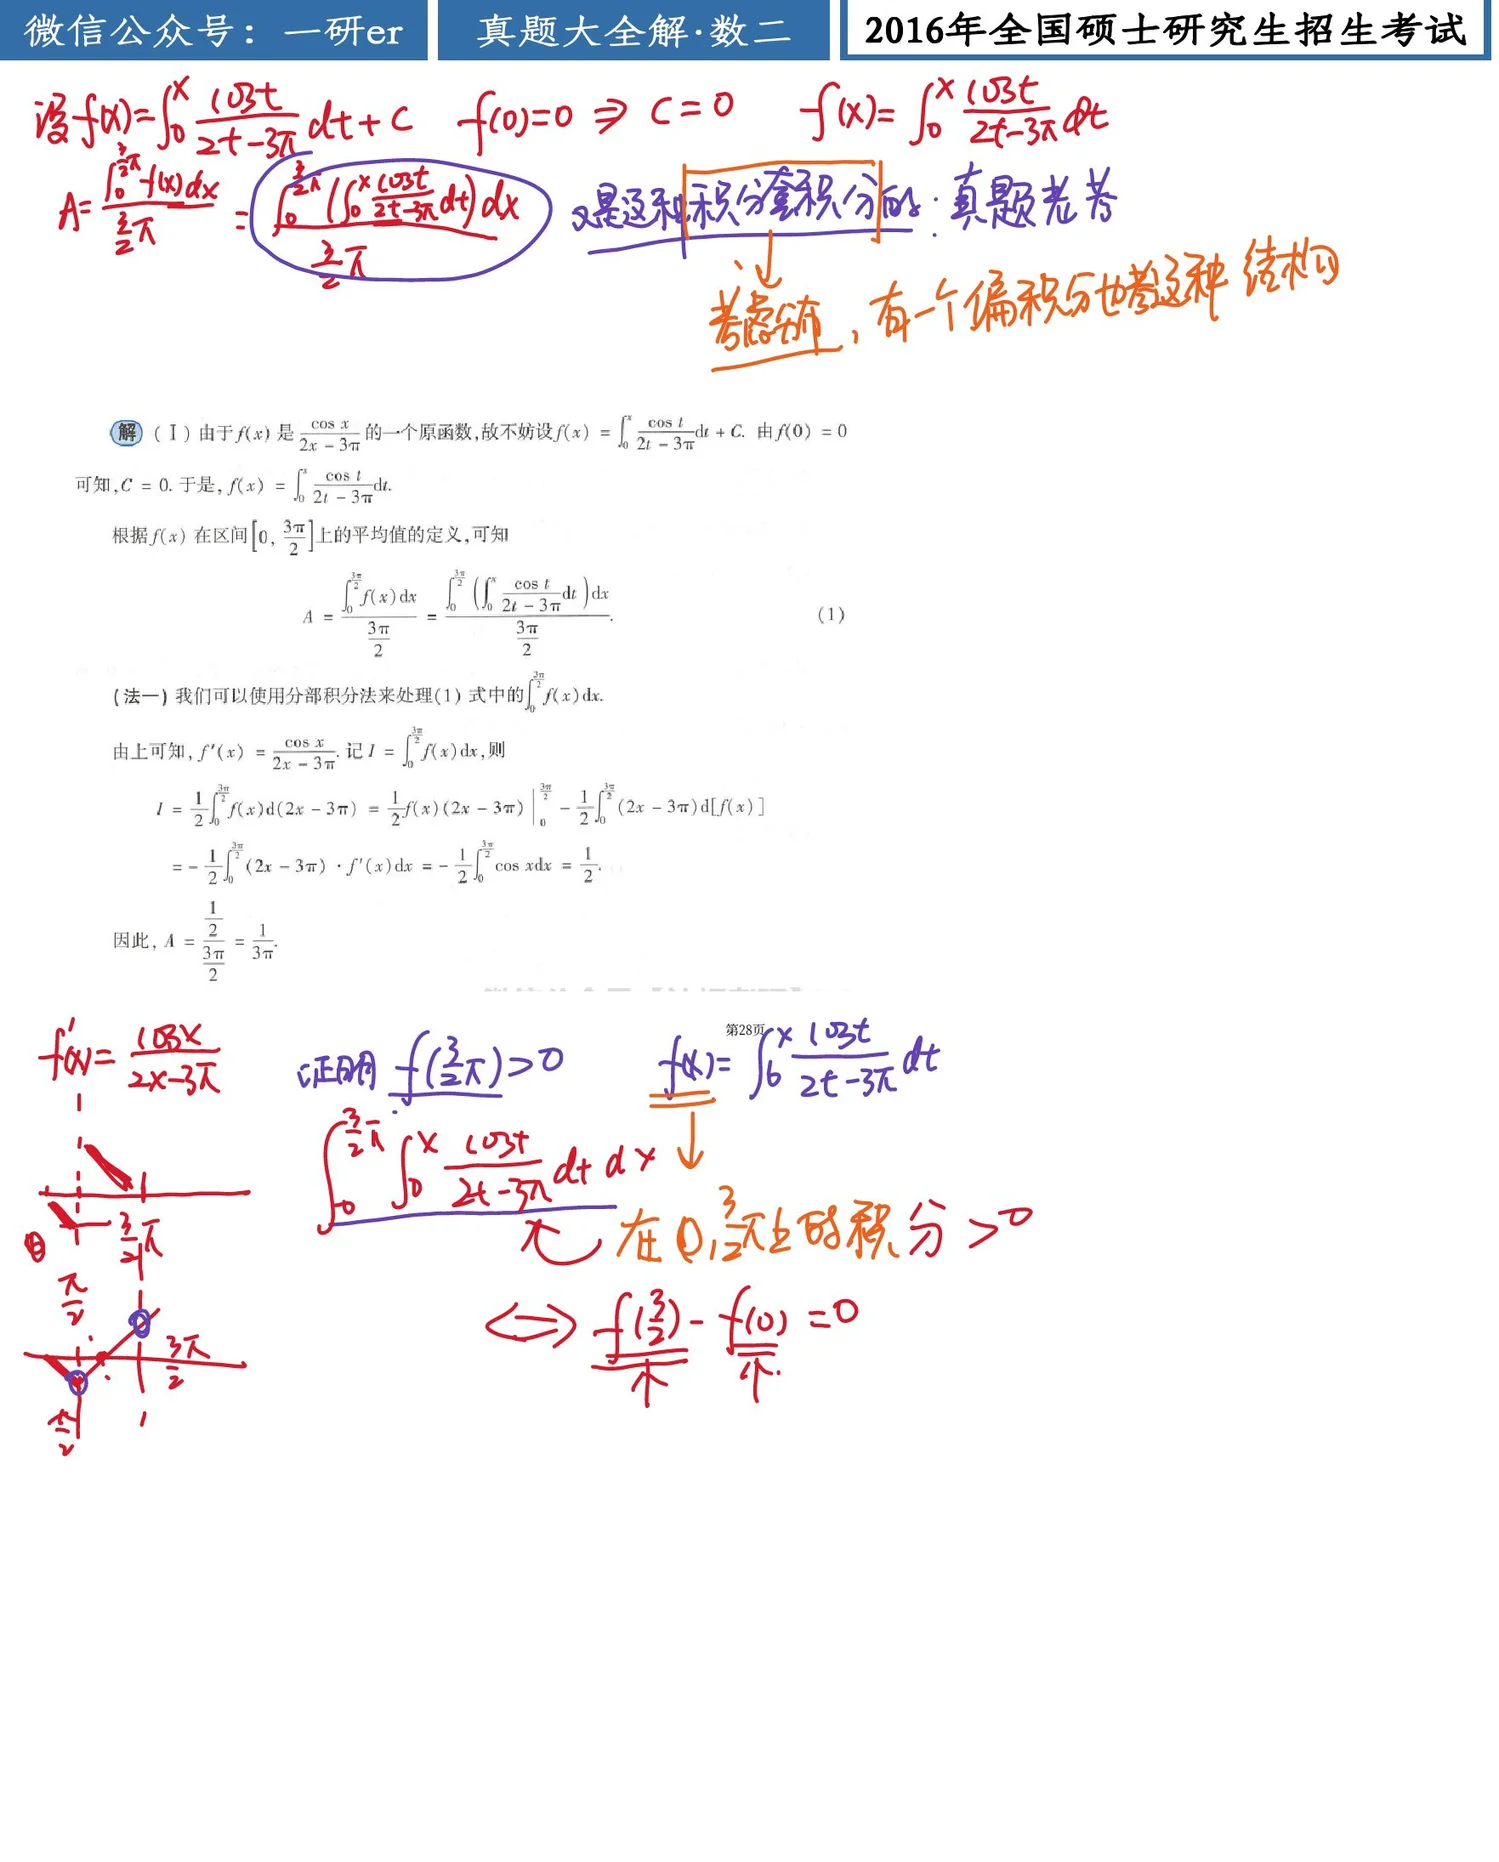 微信公众号：一研er 真题大全解·数二 2016年全国硕士研究生招生考试
设f(x)=∫₀ˣ cost/(2t-3π) dt+C f(0)=0 ⇒ C=0 f(x)=∫₀ˣ cost/(2t-3π) dt
A=∫₀^{3/2π} f(x)dx/(3/2 π) = ∫₀^{3/2π}(∫₀ˣ cost/(2t-3π) dt)dx/(3/2 π) 又是这种积分套积分的：真题老考
考虑分布，有一个偏积分也考这种结构
解 (Ⅰ) 由于f(x) 是 cos x/(2x-3π) 的一个原函数,故不妨设f(x) = ∫₀ˣ cos t/(2t-3π) dt + C. 由f(0) = 0
可知,C = 0. 于是, f(x) = ∫₀ˣ cos t/(2t-3π) dt.
根据f(x) 在区间[0, 3π/2]上的平均值的定义,可知
A = ∫₀^{3π/2} f(x)dx/(3π/2) = ∫₀^{3π/2}(∫₀ˣ cos t/(2t-3π) dt)dx/(3π/2). (1)
(法一) 我们可以使用分部积分法来处理(1) 式中的∫₀^{3π/2} f(x)dx.
由上可知, f′(x) = cos x/(2x-3π). 记 I = ∫₀^{3π/2} f(x)dx,则
I = 1/2 ∫₀^{3π/2} f(x)d(2x-3π) = 1/2 f(x)(2x-3π)|₀^{3π/2} - 1/2 ∫₀^{3π/2} (2x-3π)d[f(x)]
= - 1/2 ∫₀^{3π/2} (2x-3π)·f′(x)dx = - 1/2 ∫₀^{3π/2} cos xdx = 1/2.
因此, A = (1/2)/(3π/2) = 1/(3π).
第28页
f′(x)= cosx/(2x-3π) 证明 f(3/2 π)>0 f(x)= ∫₀ˣ cost/(2t-3π) dt
∫₀^{3/2π} ∫₀ˣ cost/(2t-3π) dt dx
在0,3/2π上的积分>0
3/2 π
π/2
⟺ f(3/2) - f(0) =0
3π/2
π/2